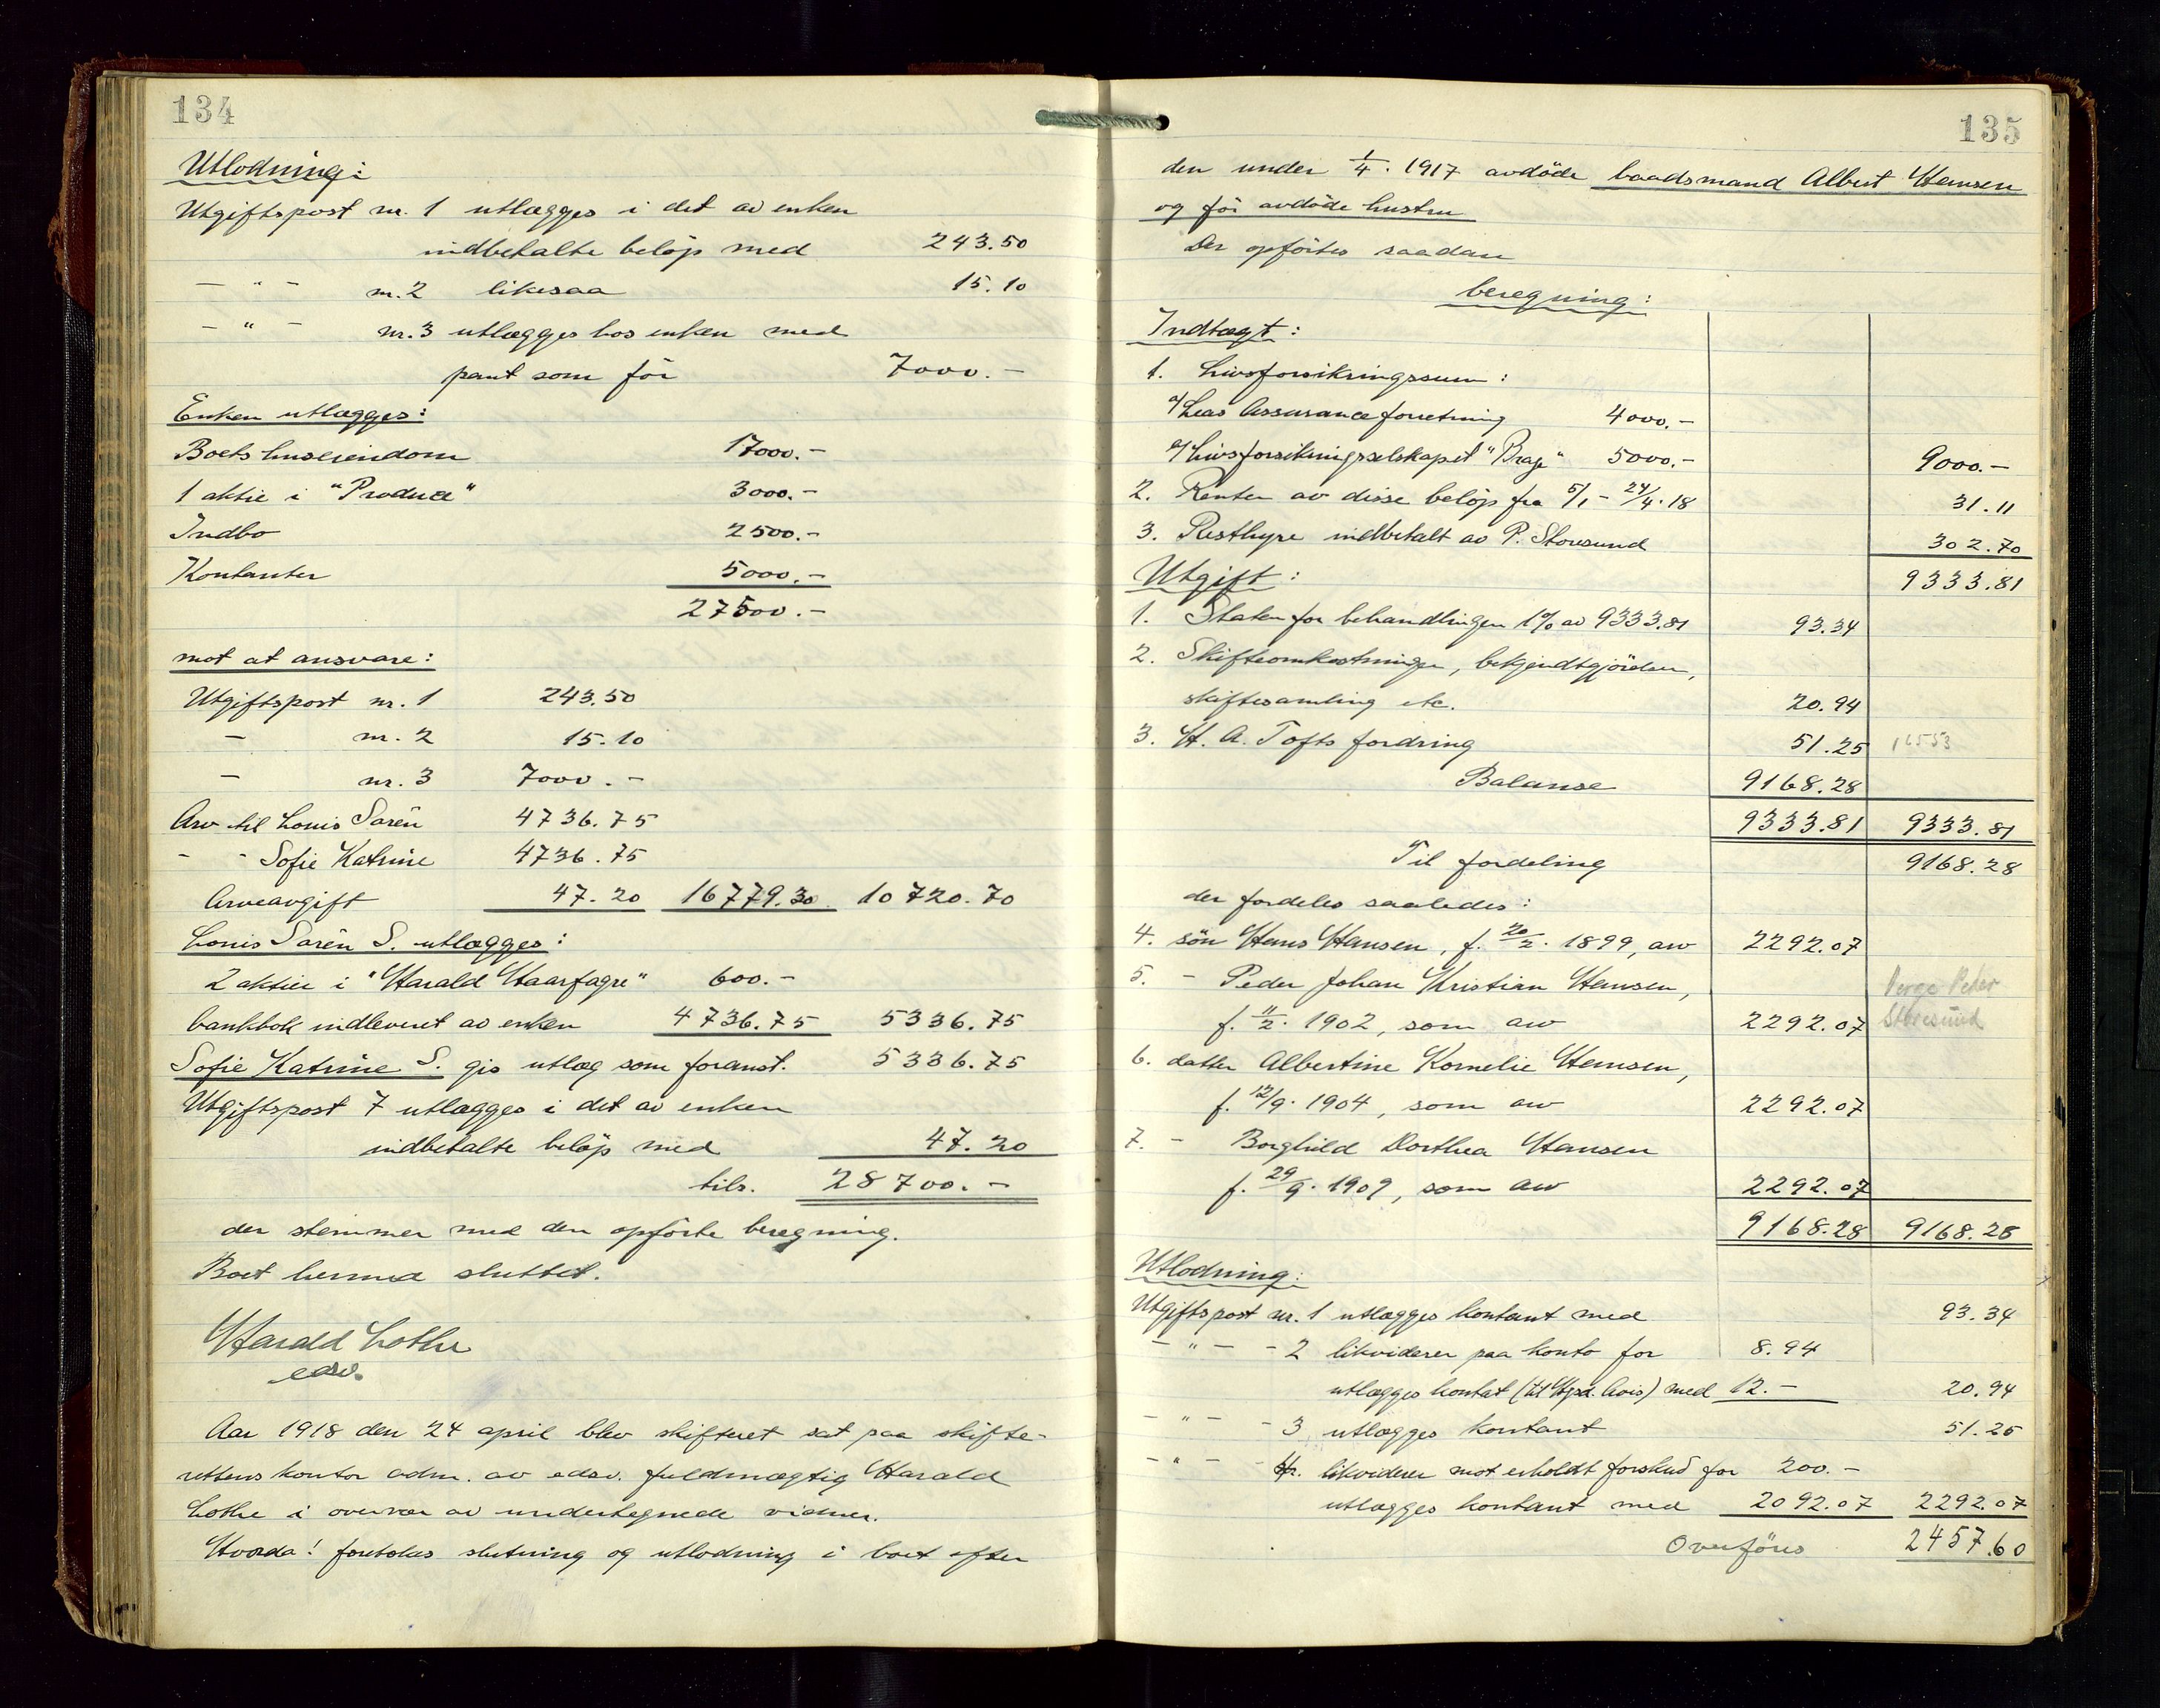 134
Utlodning:
Utgiftspost nr. 1 utlægges i det av enken
indbetalte beløp med 243.50
— " — nr. 2 likesaa 15.10
— " — nr. 3 utlægges hos enken med
pant som før 7000.—
Enken utlægges:
Boets huseiendom 17000.—
1 aktie i "Produce" 3000.—
Indbo 2500.—
Kontanter 5000.—
27500.—
mot at ansvare:
Utgiftspost nr. 1 243.50
— nr. 2 15.10
— nr. 3 7000.—
Arv til Louis Sarén 4736.75
- - Sofie Katrine 4736.75
Arveavgift 47.20 16779.30 10720.70
Louis Sarén S. utlægges:
2 aktier i "Harald Haarfagre" 600.—
bankbok indleveret av enken 4736.75 5336.75
Sofie Katrine S. gis utlæg som foranst. 5336.75
Utgiftspost 7 utlægges i det av enken
indbetalte beløp med 47.20
tils. 28700.—
der stemmer med den opførte beregning.
Boet hermed sluttet.
Harald Lothe
edsv.
Aar 1918 den 24 april blev skifteret sat paa skifte-
rettens kontor adm. av edsv. fuldmægtig Harald
Lothe i overvær av undertegnede vidner.
Hvorda! foretokes slutning og utlodning i boet efter
135
den under 1/4. 1917 avdøde baadsmand Albert Hansen
og før avdøde hustru
Der opførtes saadan
beregning:
Indtægt:
1. Livsforsikringssum:
a/ Leas Assuranceforretning 4000.—
a/ Livsforsikringsselskapet "Brage" 5000.— 9000.—
2. Renter av disse beløp fra 5/1 - 24/4.18 31.11
3. Resthyre indbetalt av P. Storesund 302.70
Utgift: 9333.81
1. Staten for behandlingen 1% av 9333.81 93.34
2. Skifteomkostninger, bekjendtgjørelser,
skiftesamling etc. 20.94
3. H. A. Tofts fordring 51.25 16553
Balanse 9168.28
9333.81 9333.81
Til fordeling 9168.28
der fordeles saaledes:
4. søn Hans Hansen, f. 20/2. 1899, arv 2292.07
5. - Peder Johan Kristian Hansen, Verge Peter
f. 11/2. 1902, som arv 2292.07 Storesund
6. datter Albertine Kornelie Hansen,
f. 12/9. 1904, som arv 2292.07
7. - Borghild Dorthea Hansen
f. 29/9. 1909, som arv 2292.07
9168.28 9168.28
Utlodning:
Utgiftspost nr. 1 utlægges kontant med 93.34
— " — - 2 likviderer paa konto for 8.94
utlægges kontat (til Hgsd. Avis) med 12.— 20.94
— " — - 3 utlægges kontant 51.25
— " — - 4. likviderer mot erholdt forskud for 200.—
utlægges kontant med 2092.07 2292.07
Overføres 2457.60